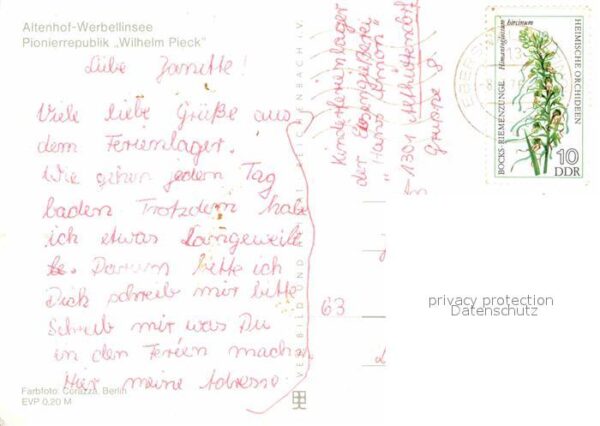 Altenhof-Werbellinsee
Pionierrepublik „Wilhelm Pieck“
Liebe Janette!
Viele liebe Grüße aus
dem Ferienlager.
Wir gehen jedem Tag
baden Trotzdem habe
ich etwas Langeweile
Darum bitte ich
Dich schreib mir bitte
Schreib mir was Du
in den Ferien machst.
Hier meine Adresse
Farbfoto: Corazza, Berlin
EVP 0,20 M
VERLAG BILD UND HEIMAT REICHENBACH i. V.
Kinderferienlager
der Eisengießerei
„Hans Ammon“
1301 Althüttendorf
Gruppe 8
An
63
EBERS
BOCKS-RIEMENZUNGE Himantoglossum hircinum
HEIMISCHE ORCHIDEEN
10
DDR
privacy protection
Datenschutz